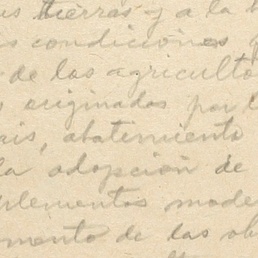 tierras y a la
condiciones
de los agriculto
originados por l
ais, abatimiento
la adopción de
plementos mode
mento de las ob